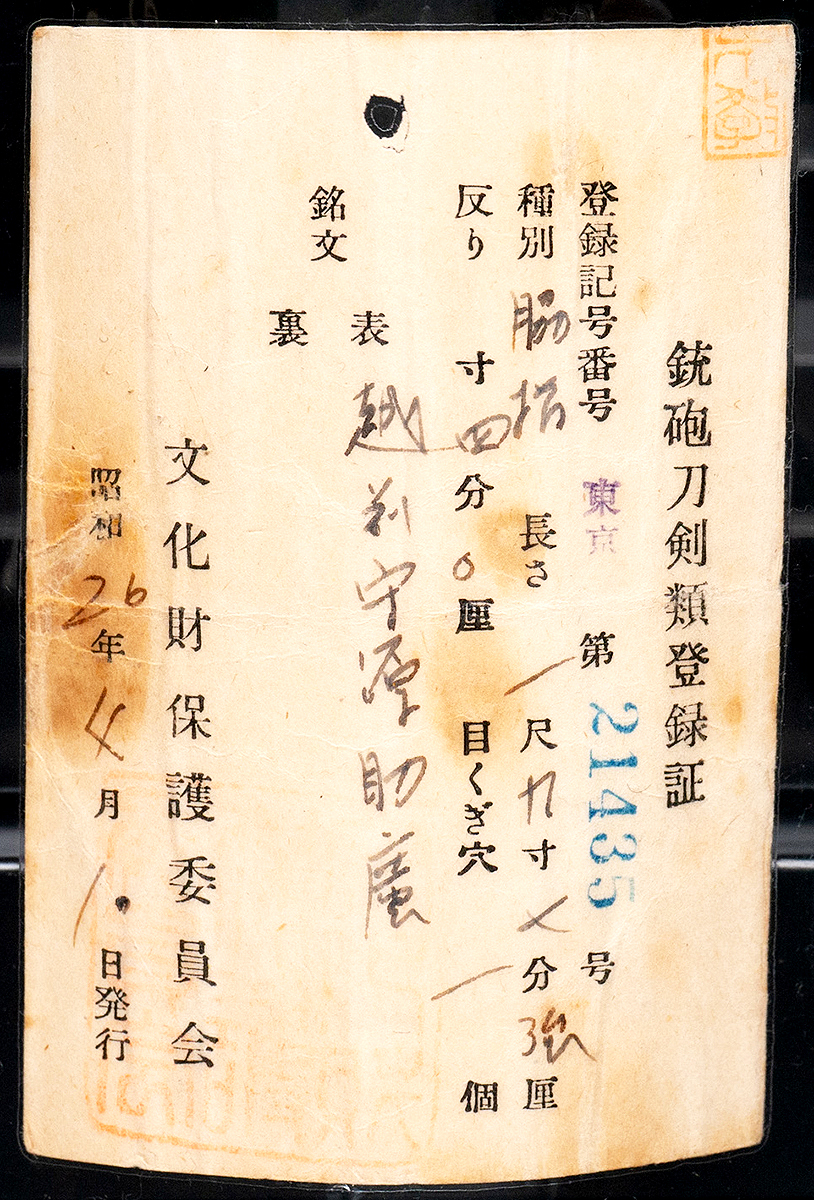 銃砲刀剣類登録証
登録記号番号 東京 第 21435 号
種別 脇指 長さ 一尺九寸七分強厘
反り 寸四分0厘 目くぎ穴 一個
銘文
表 越前守源助廣
裏
文化財保護委員会
昭和26年4月1日発行